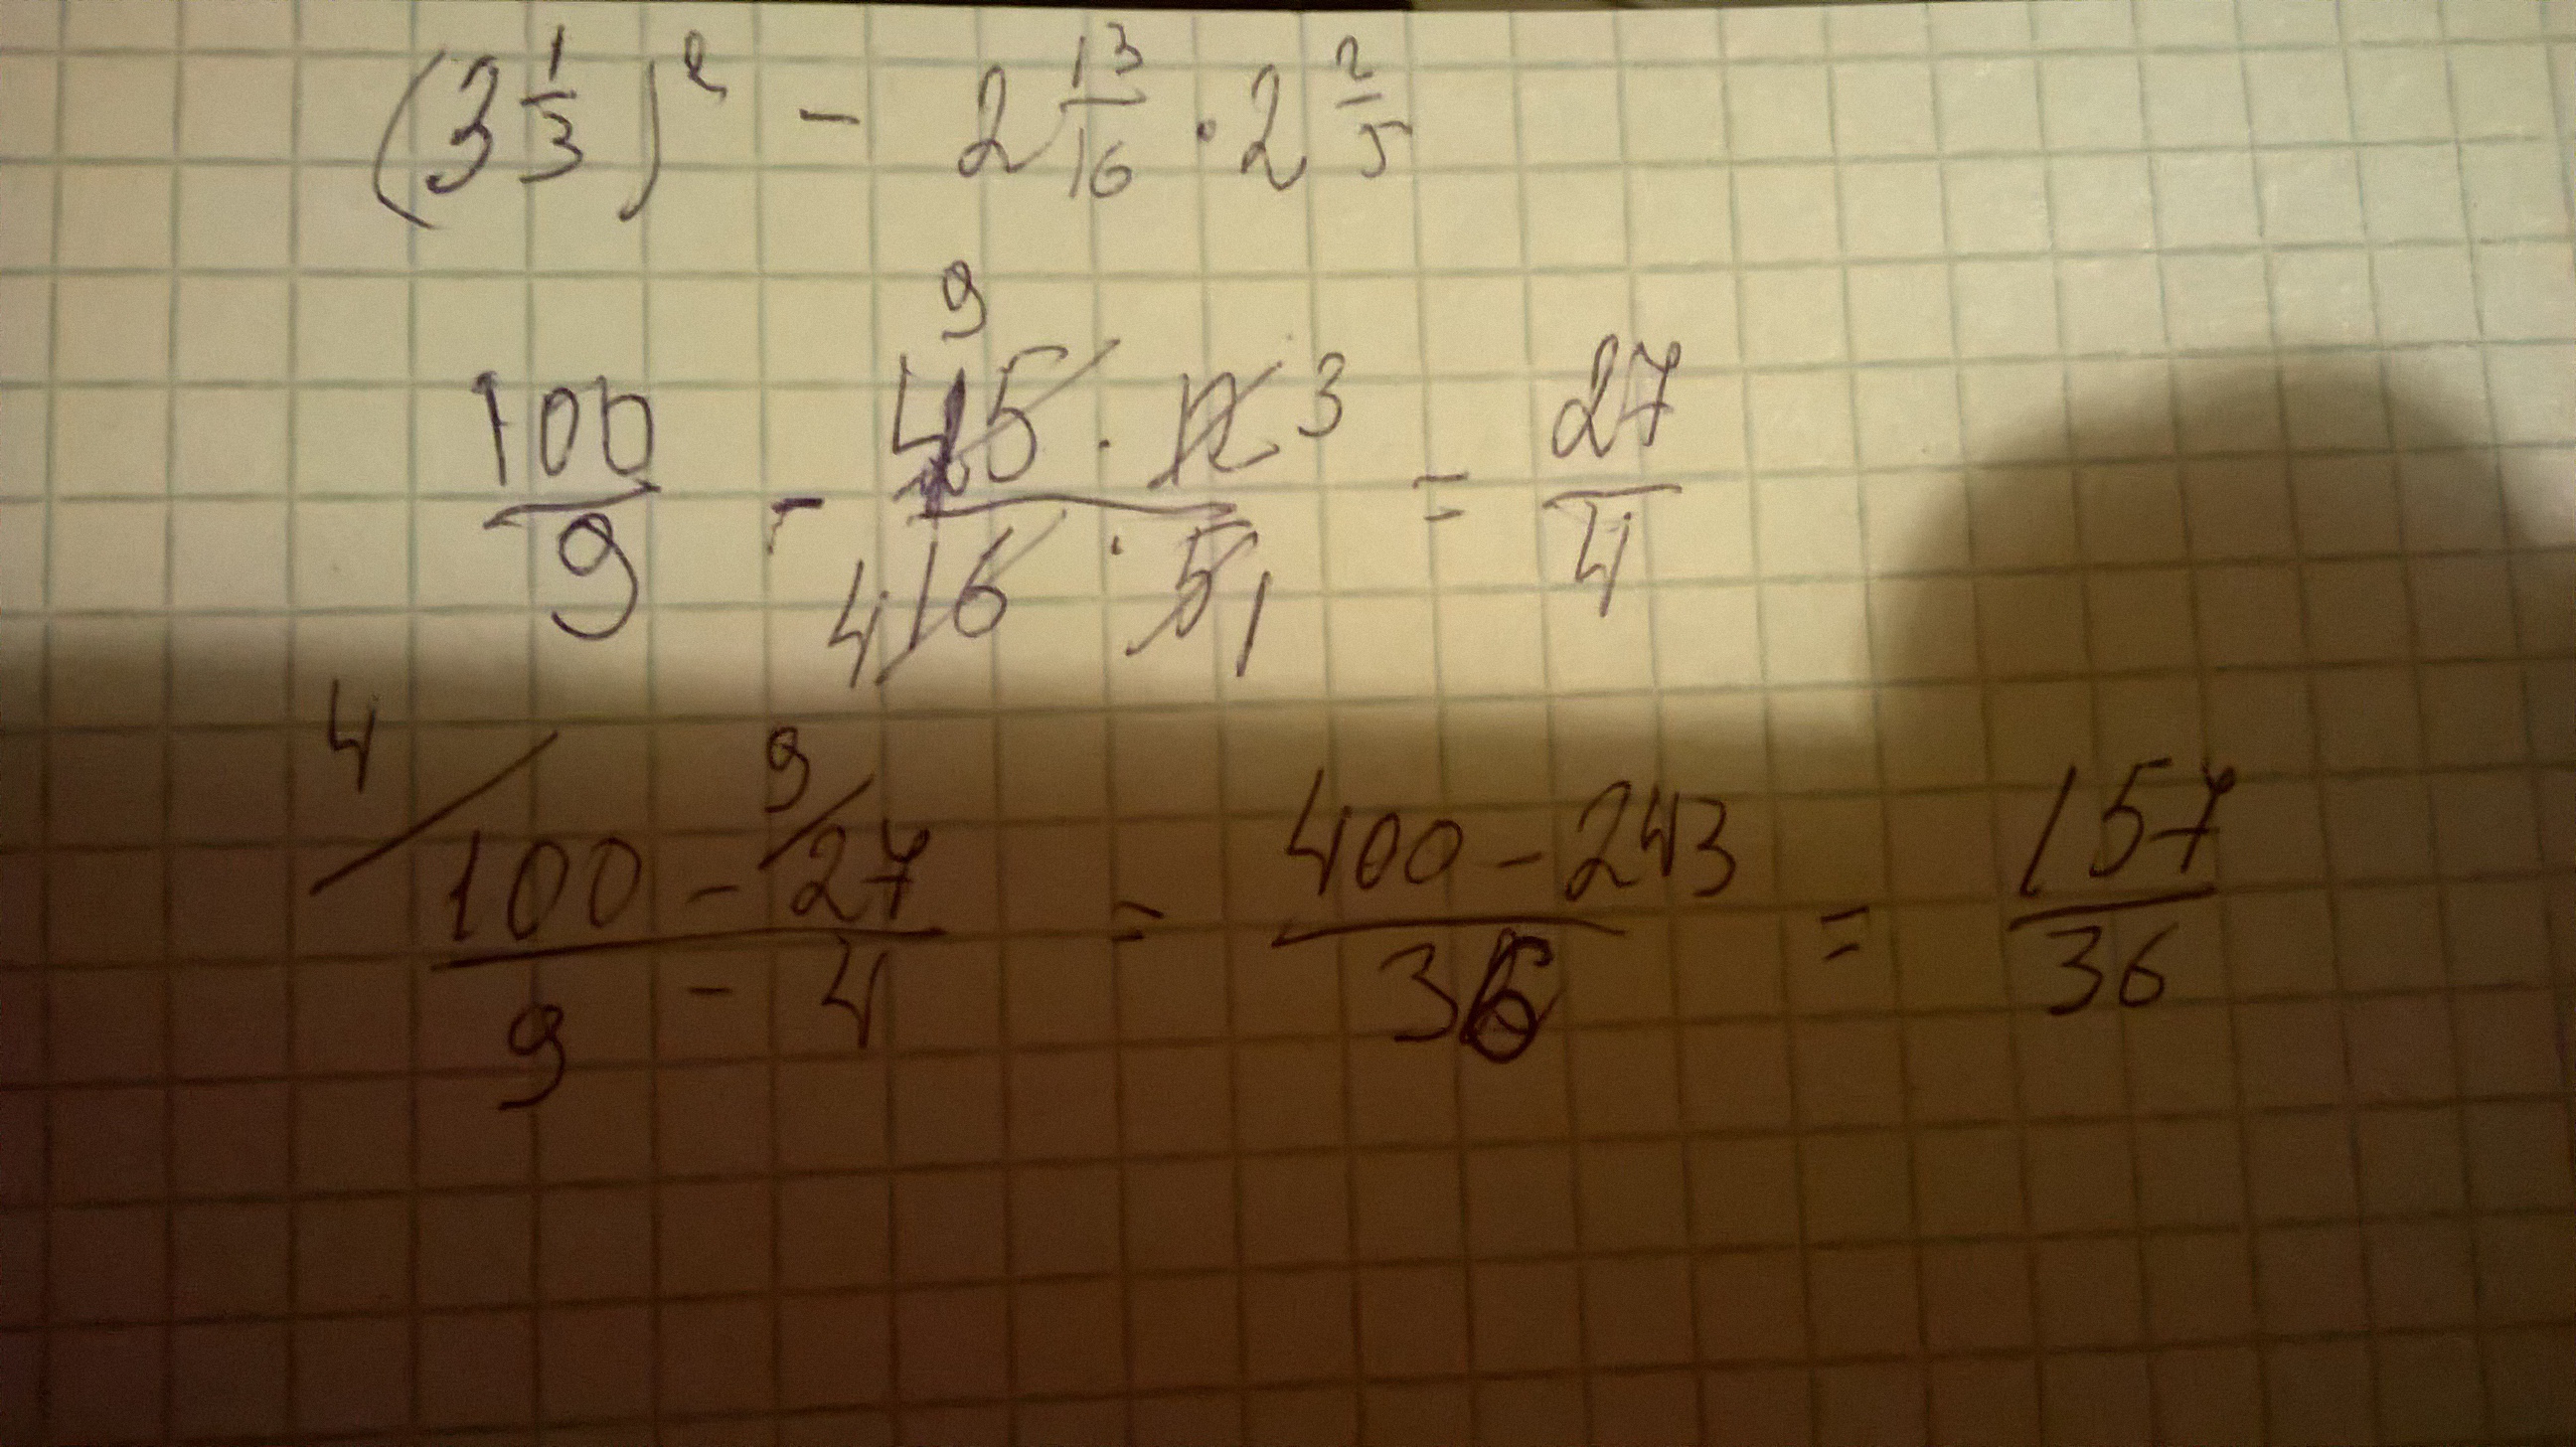 (3 1/3)² - 2 13/16 · 2 2/5
100/9 - 45 9 · 12 3 / 4 16 · 5 1 = 27/4
4/ 100 - 9/ 27 / 9 - 4 = 400 - 243 / 36 = 157/36